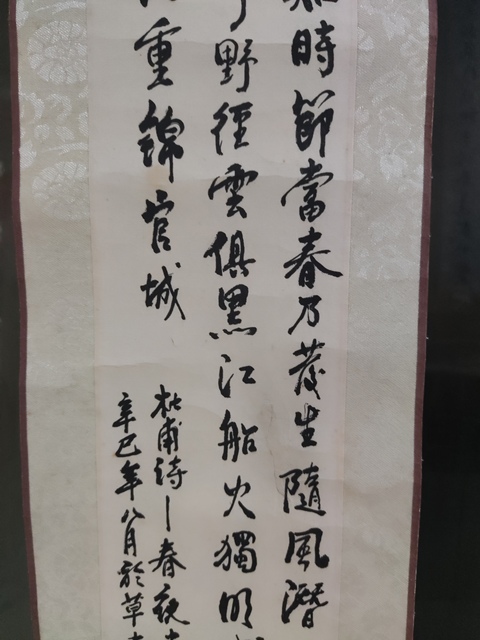 時節當春乃發生隨風潛
野徑雲俱黑江船火獨明
重錦官城
杜甫詩一春夜
辛巳年八月於草